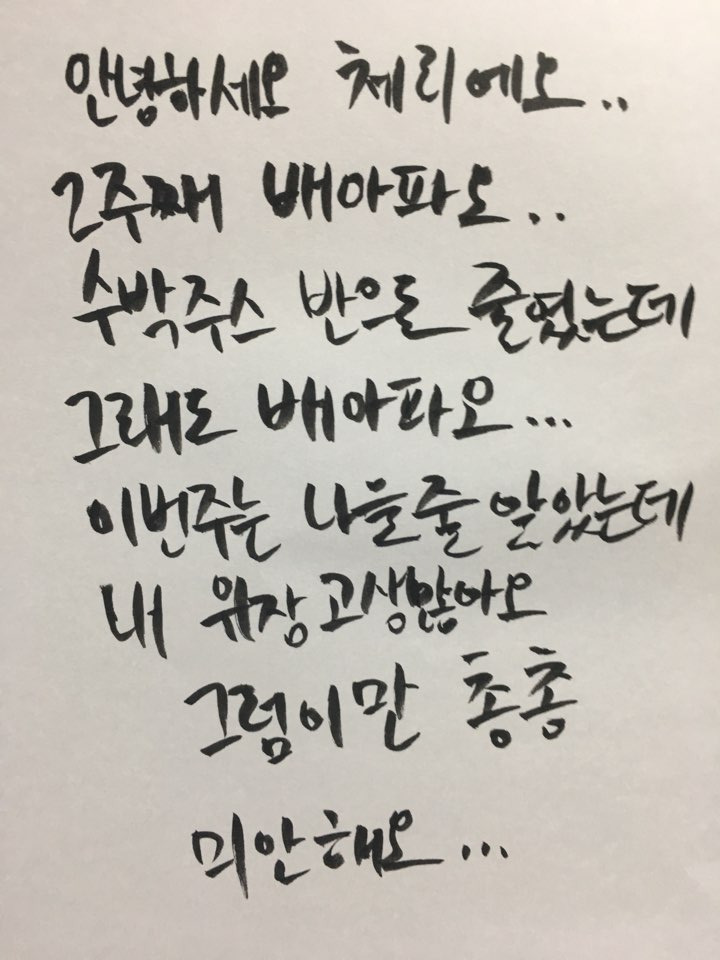 안녕하세오 체리에오..
2주째 배아파오..
수박주스 반으로 줄였는데
그래도 배아파오...
이번주는 나을줄 알았는데
내 위장 고생많아오
그럼이만 총총
미안해오...